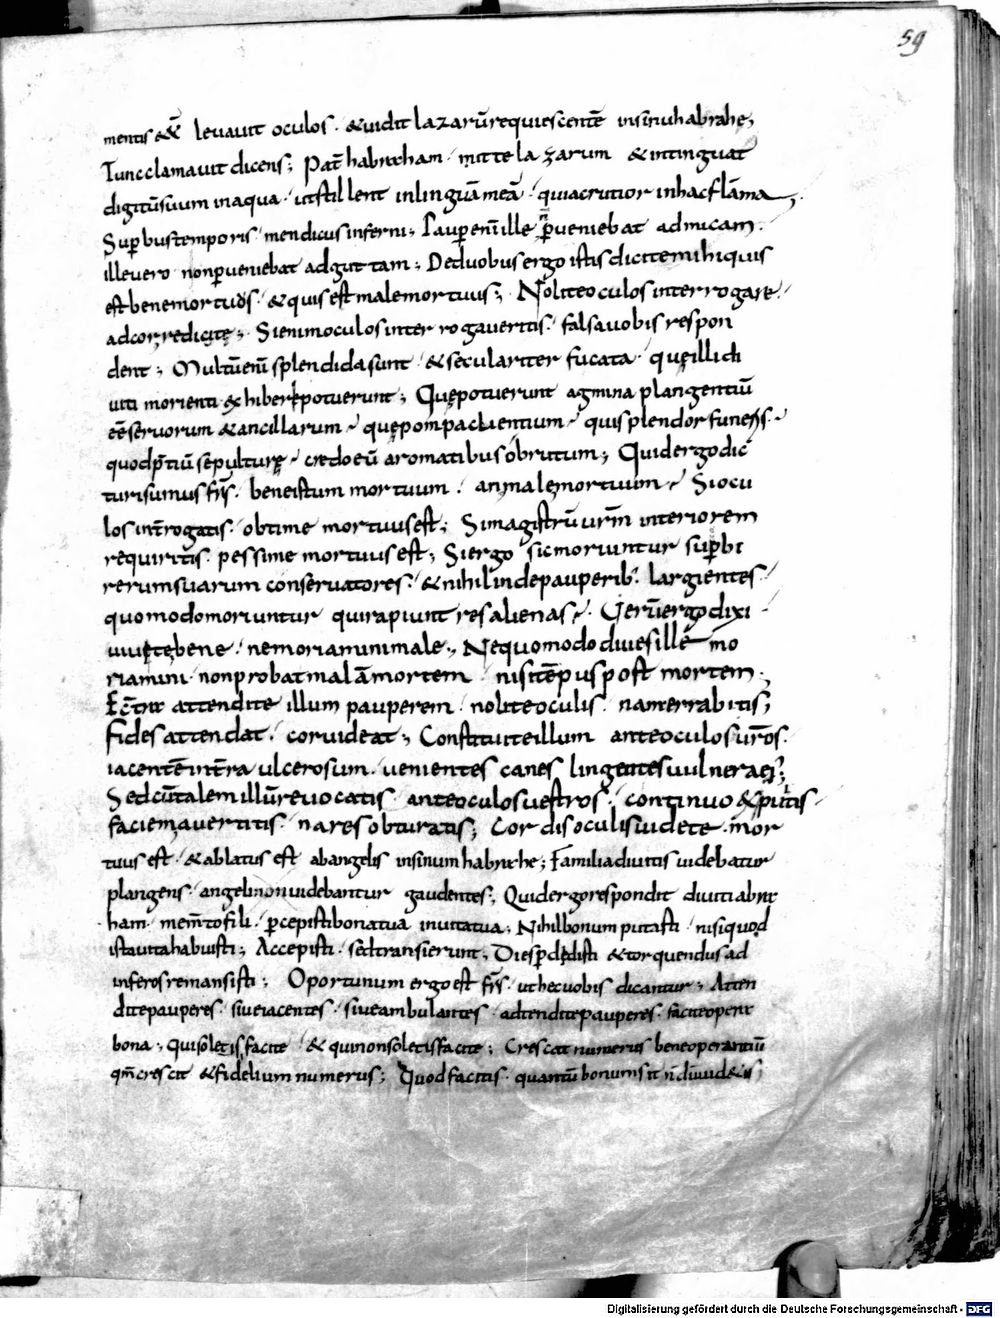 59
mentis &̄ levavit oculos · &vidit lazarū requiescentē insinuhabrahe;
Tuncclamavit dicens; Pat̄ habraham · mitte lazarum &intinguat
digitūsuum inaqua · utstillent inlinguāmeā · quiacrutior inhacflāma
Sup̄bustemporis · mendicusinferni; Paup̄ enī ille p̄veniebat admicam ·
illevero nonp̄veniebat adguttam; Deduobusergo istis dicitemihiquis
est benemortuus · &quis est malemortuus; Noliteoculosinterrogare ·
adcor redicite; Sienimoculosinterrogaveritis · falsavobis respon
dent; Multū enī splendidasunt · &seculariter fucata · quęilli di
viti morienti exhiberi potuerunt; Quępotuerunt agmina plangentiū
eē servorum &ancillarum · quępompaclientium · quisplendor funeris ·
quodp̄tiū sepulturę · credoeū aromatibusobrutum; Quidergodic
turisumus fr̄s · beneistum mortuum · anmalemortuum · Siocu
los int̄rogatis · obtime mortuus est; Simagistrū vr̄m interiorem
requiritis · pessime mortuus est; Siergo sicmoriuntur sup̄bi
rerumsuarum conservatores · &nihilindepauperib; largientes ·
quomodomoriuntur quirapiunt resalienas · Verū ergodixi
vivitebene · nemoriaminimale; Nequomododivesille mo
riamini · nonprobatmalāmortem nisitēpuspost mortem;
Ec̄tra attendite illum pauperem · noliteoculis · namerrabitis;
fidesattendat · corvideat; Constituiteillum anteoculosvr̄os ·
iacentē int̄ra ulcerosum · venientes canes lingentesvulneraei;
Sedcūtalemillūrevocatis · anteoculosvestros · continuo &sputis
faciemavertitis · naresobturatis; Cordisoculisvidete · mor
tuus est · &ablatus est abangelis insinumhabrahe; familiadivitis videbatur
plangens · angelinonvidebantur gaudentes; Quidergorespondit divitiabra
ham · mem̄tofili · p̄cepistibonatua invitatua; Nihilbonumputasti · nisiquod
istavitahabuisti; Accepisti · sedtransierunt; Diesp̄didisti &torquendusad
inferosremansisti; Oportunum ergoest fr̄s · uthecvobis dicantur; Atten
ditepauperes · siveiacentes · siveambulantes · adtenditepauperes · faciteopera
bona; quisoletisfacite · &quinonsoletisfacite; Crescat numerus beneoperantiū
qm̄ crescit &fidelium numerus; Quodfacitis · quantū bonumsit n̄dūvidetis;
Digitalisierung gefördert durch die Deutsche Forschungsgemeinschaft - DFG